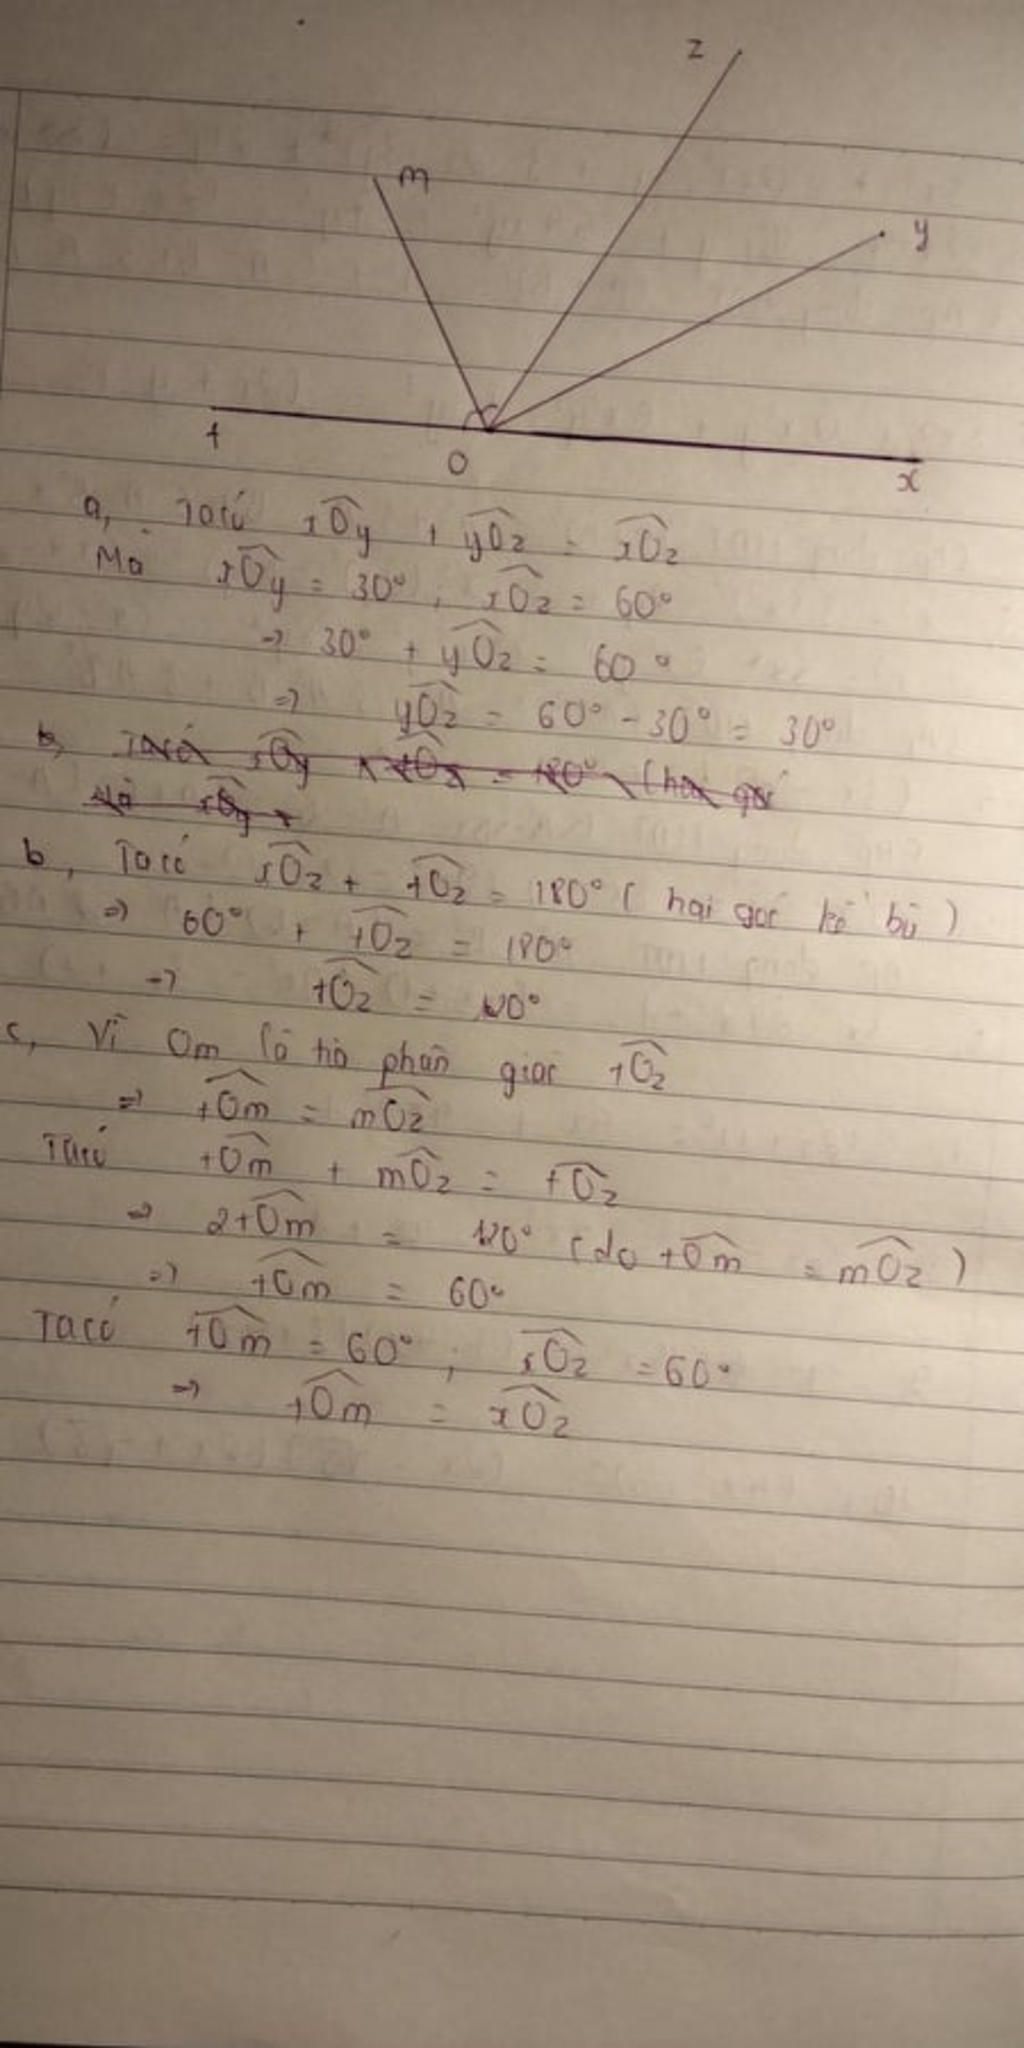 z
m
y
t
O
x
a, Ta có xOy + yOz = xOz
Mà xOy = 30°, xOz = 60°
=> 30° + yOz = 60°
=> yOz = 60° - 30° = 30°
b, Ta có xOz + tOz = 180° ( hai góc kề bù )
=> 60° + tOz = 180°
=> tOz = 120°
c, Vì Om là tia phân giác tOz
=> tOm = mOz
Ta có tOm + mOz = tOz
=> 2tOm = 120° (do tOm = mOz )
=> tOm = 60°
Ta có tOm = 60° , xOz = 60°
=> tOm = xOz